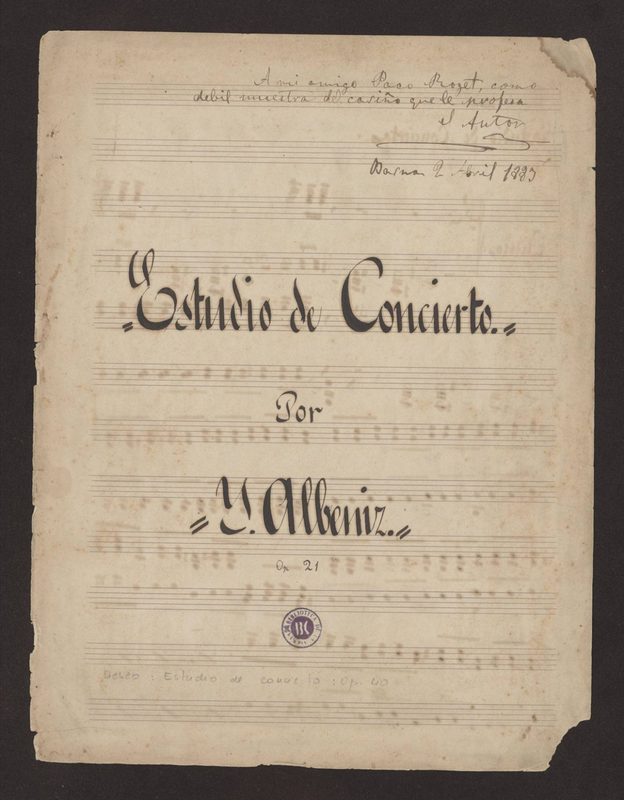 A mi amigo Paco Rozet, como
debil muestra del cariño que le profesa
el Autor
Barna 2 Abril 1885
Estudio de Concierto.
Por
Y. Albeniz.
Op 21
BIBLIOTECA DE
BC
Deseo : Estudio de concierto : Op. 40